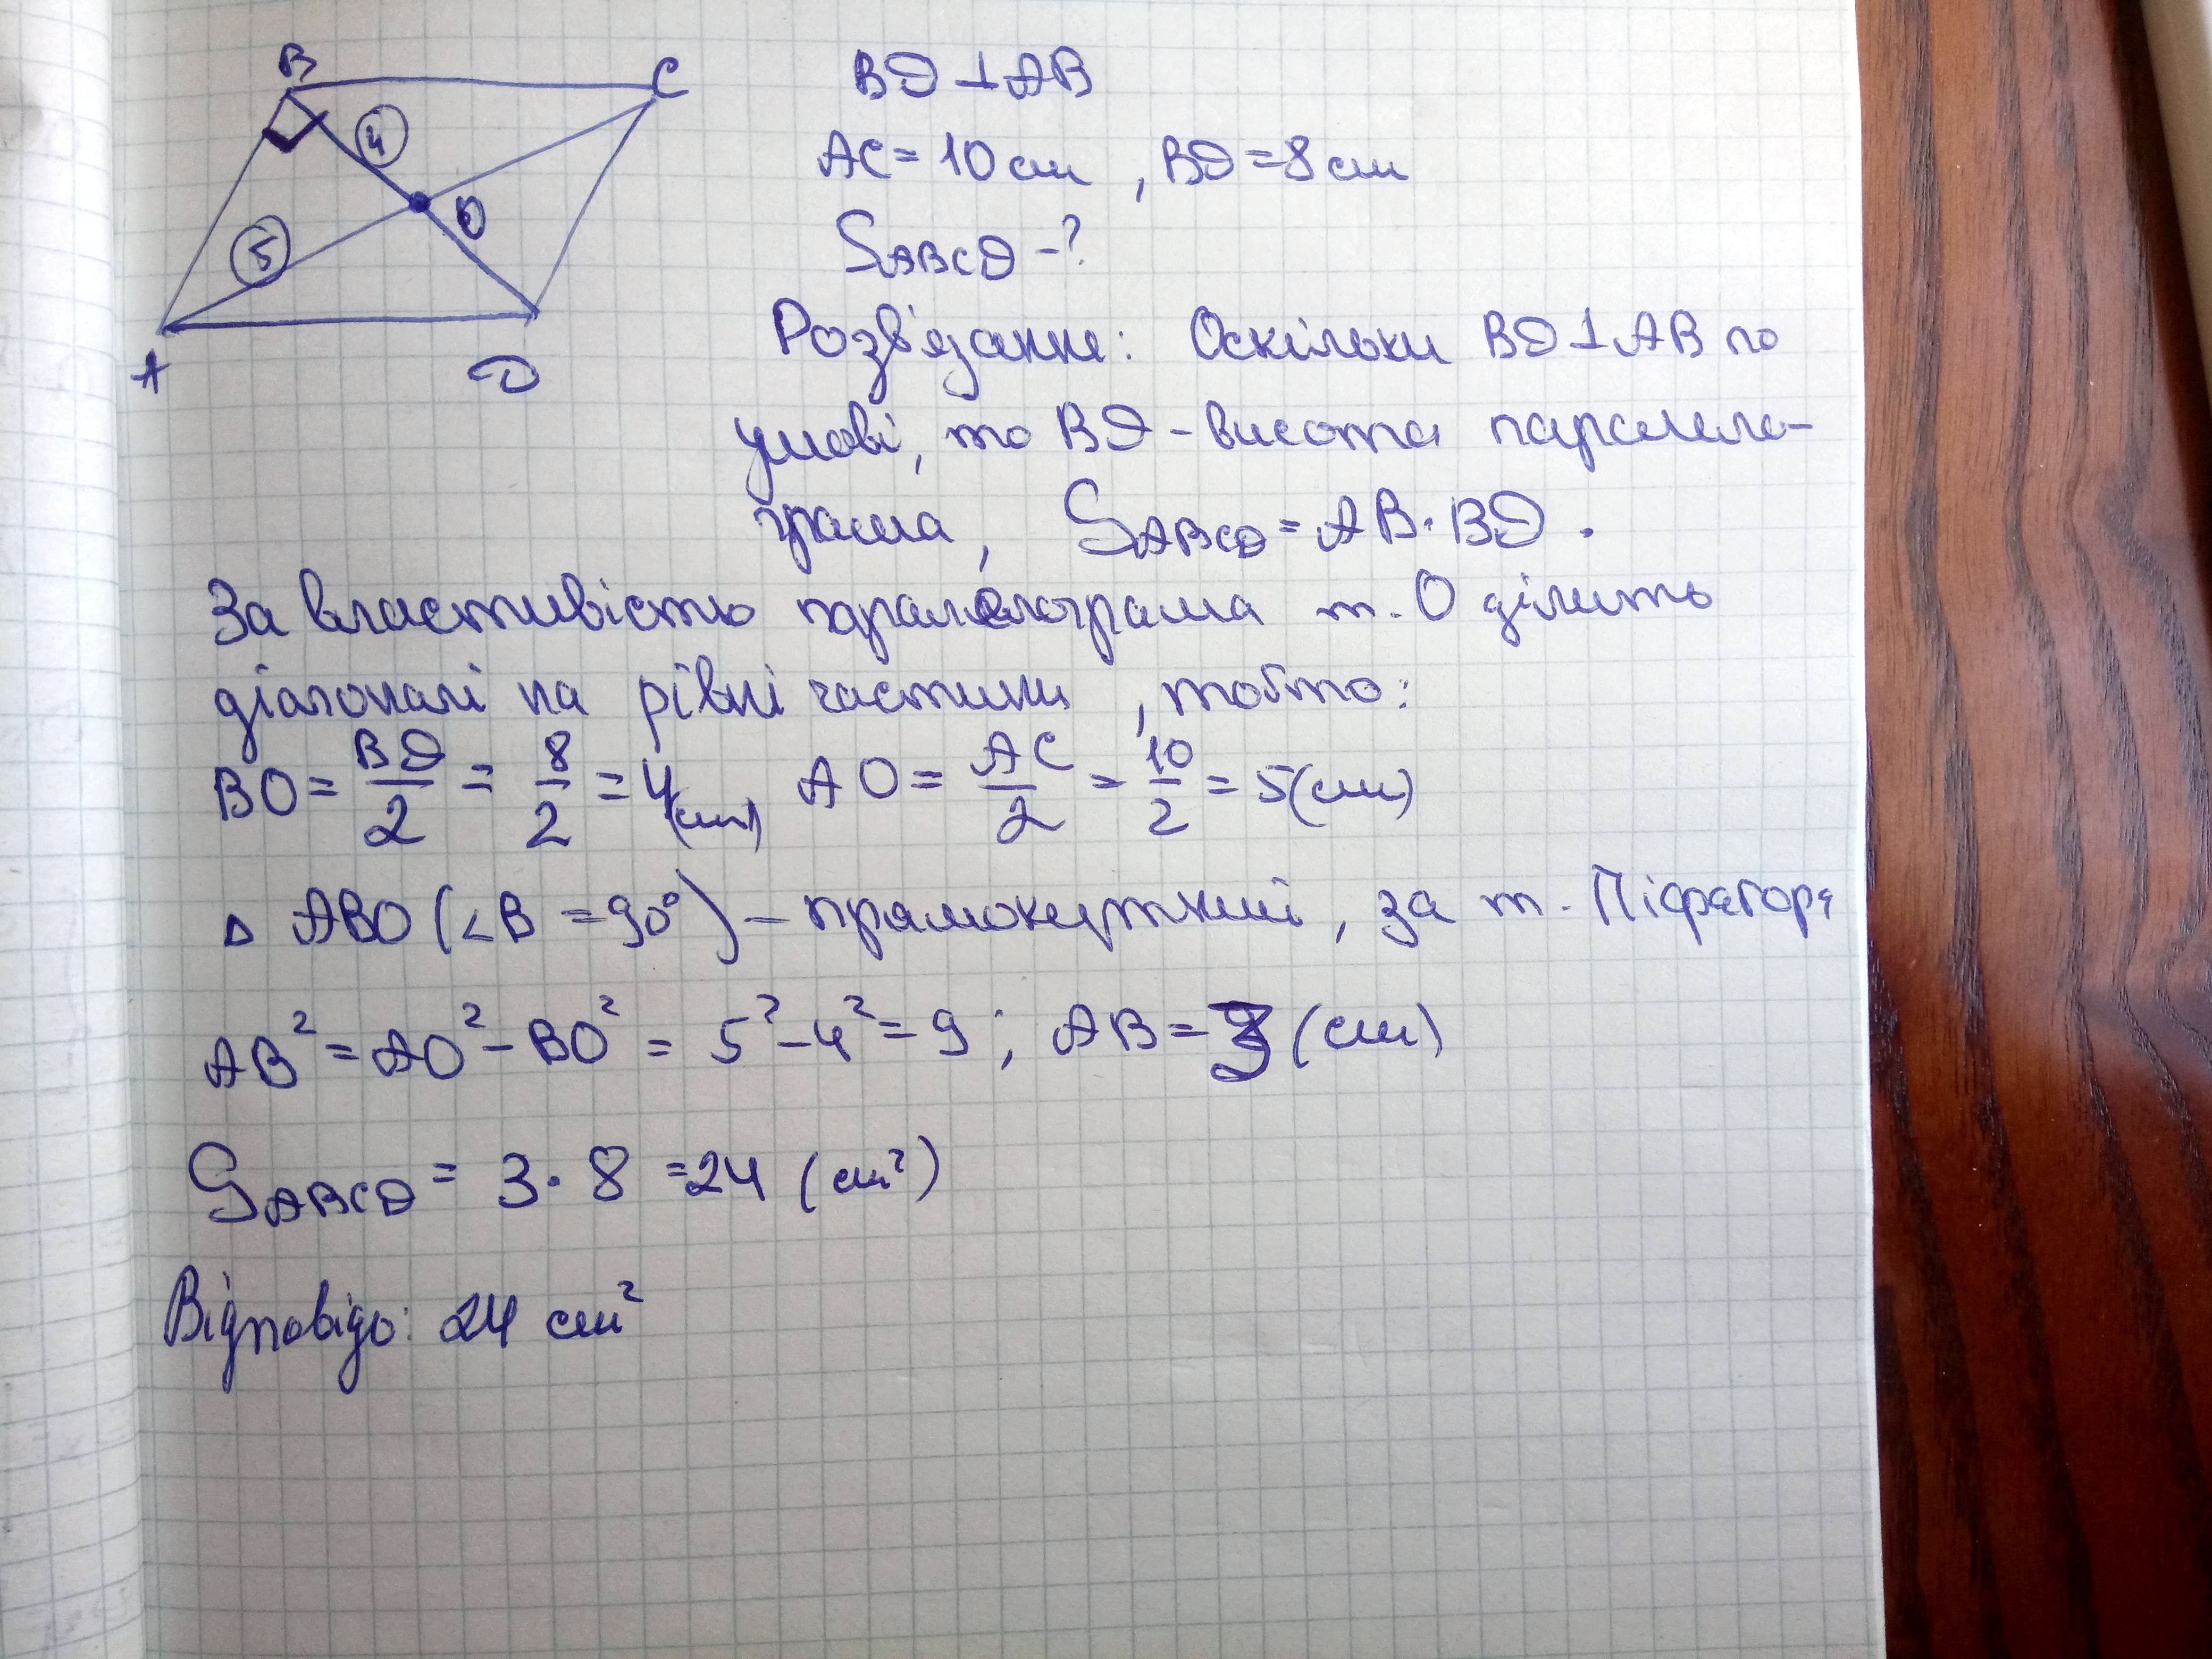 B C
4
O
5
A D
BD ⊥ AB
AC = 10 см , BD = 8 см
S ABCD - ?
Розв'язання: Оскільки BD ⊥ AB по
умові, то BD - висота паралело-
грама, S ABCD = AB · BD .
За властивістю паралелограма т. О ділить
діагоналі на рівні частини , тобто:
BO = BD/2 = 8/2 = 4 (см) AO = AC/2 = 10/2 = 5 (см)
Δ ABO (∠B = 90°) - прямокутний , за т. Піфагора
AB² = AO² - BO² = 5² - 4² = 9 ; AB = 3 (см)
S ABCD = 3 · 8 = 24 (см²)
Відповідь: 24 см²